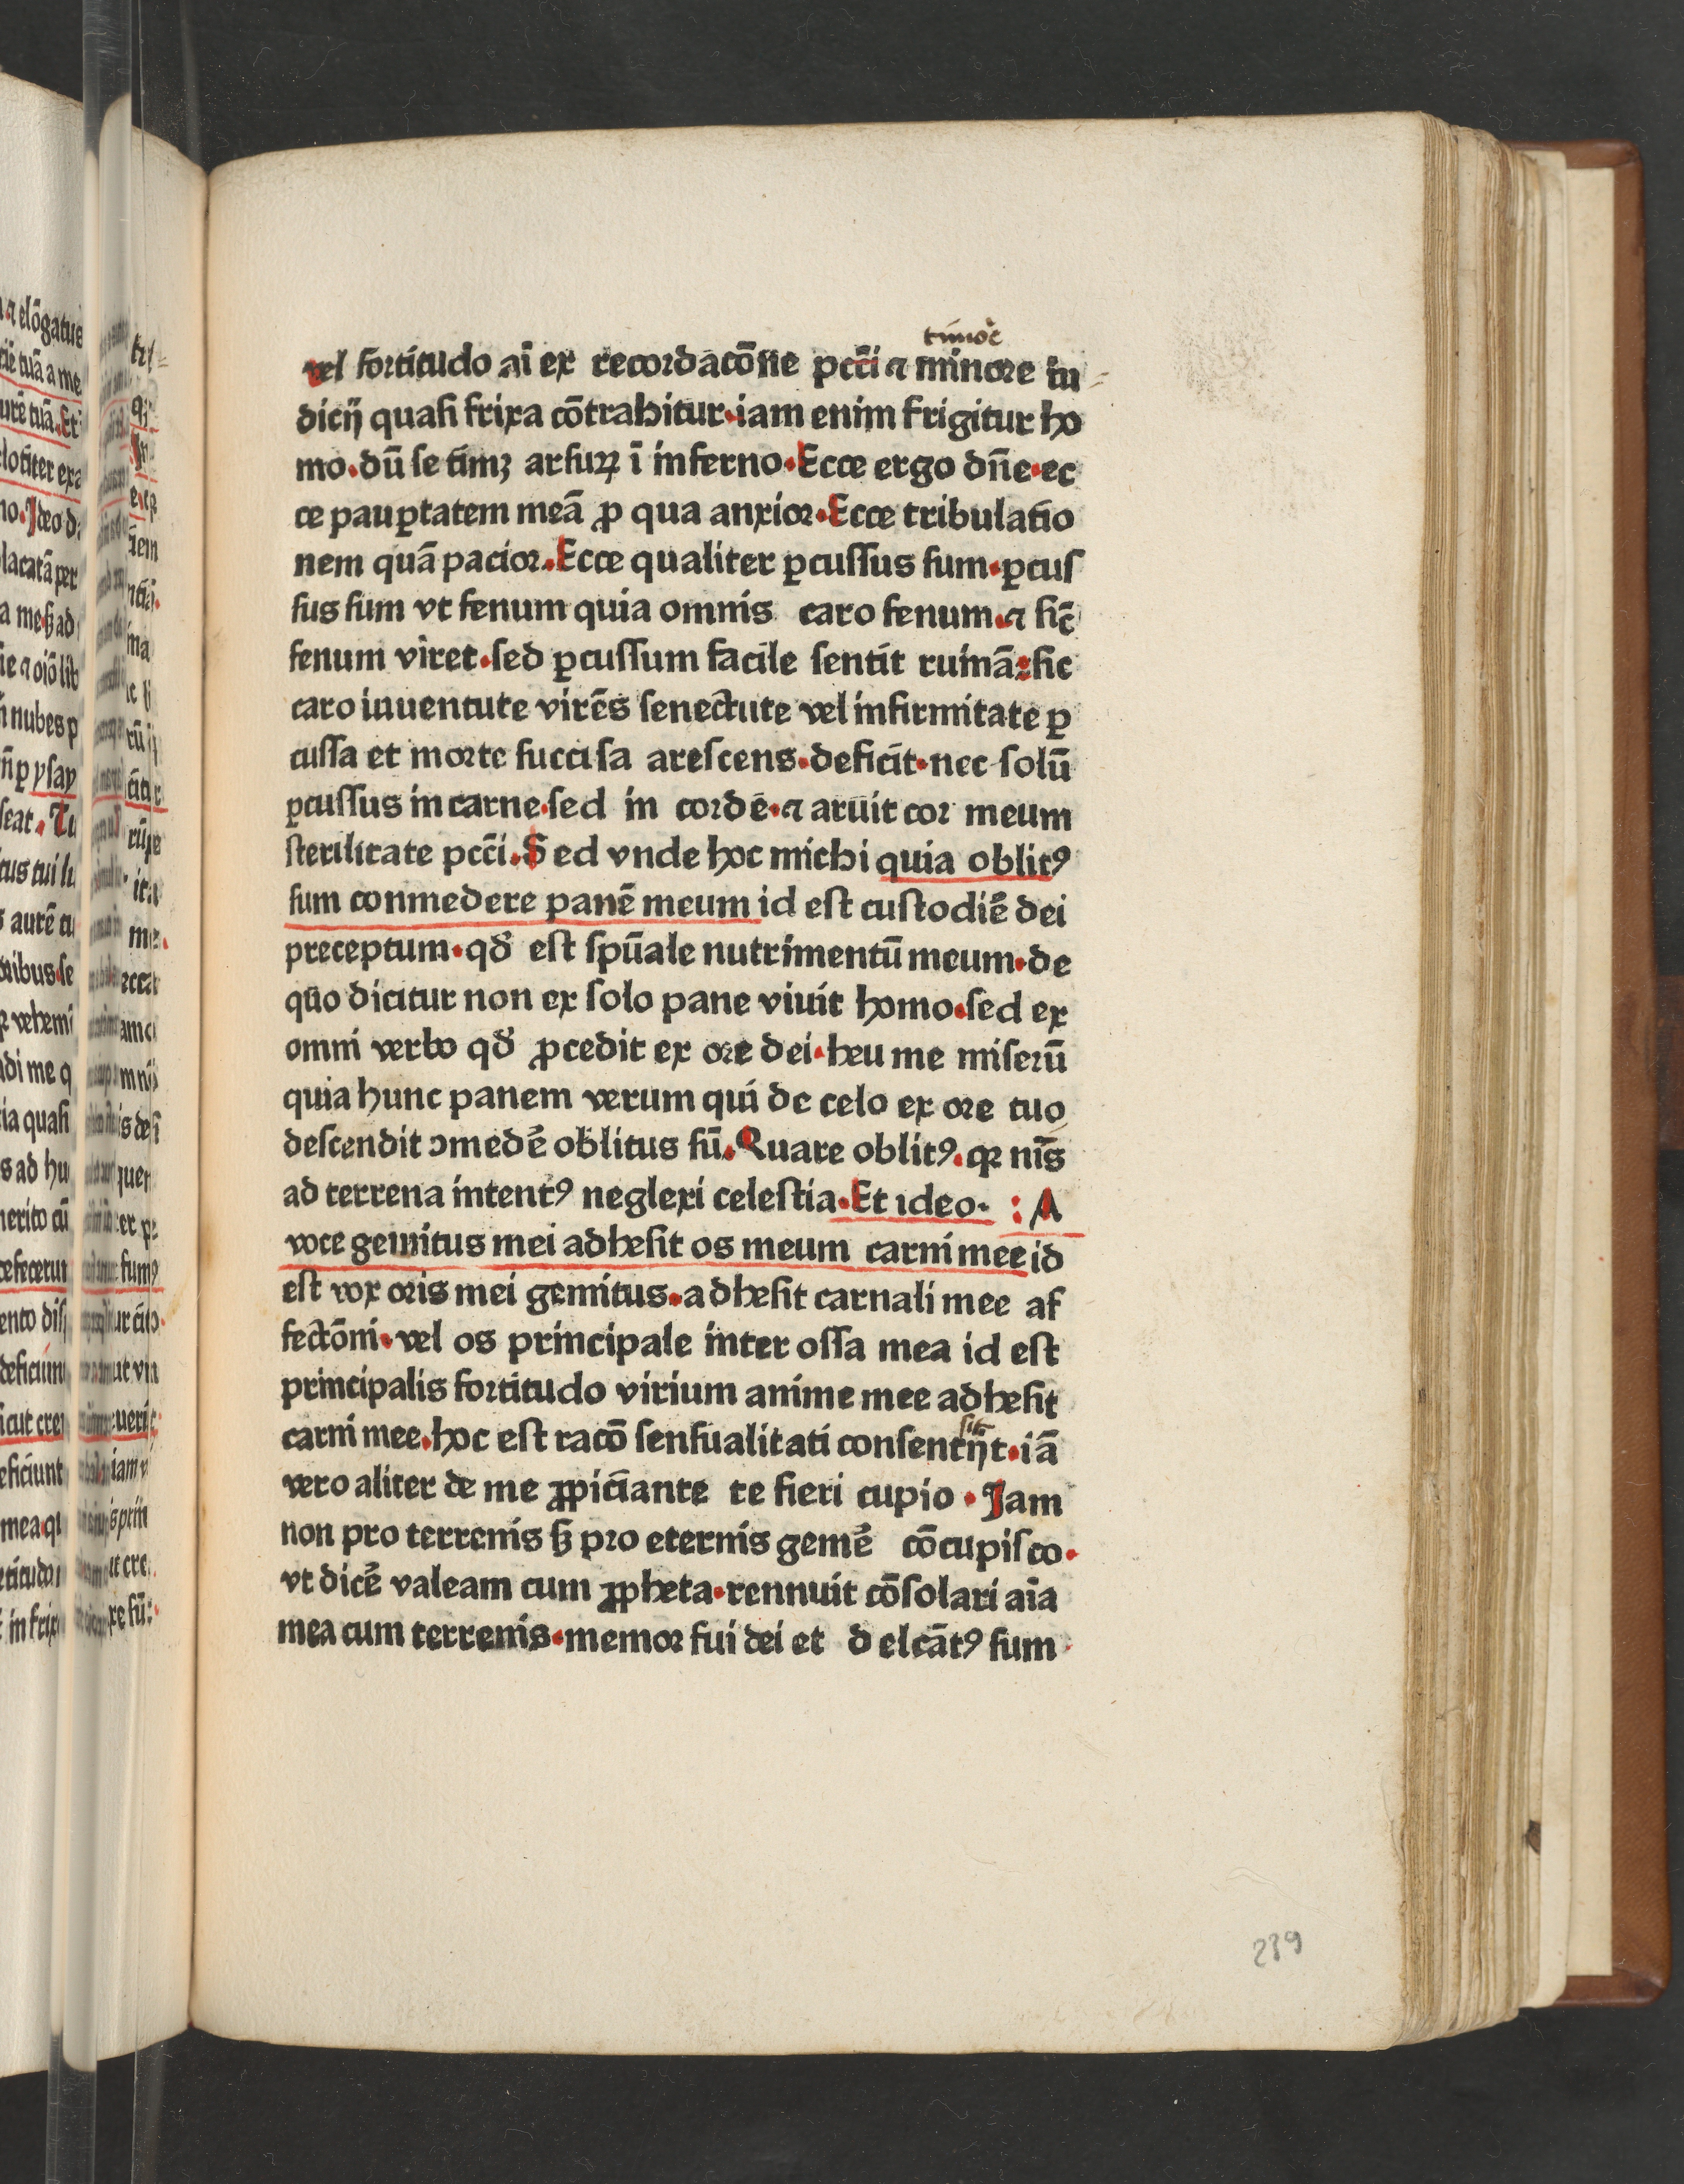 timoře
vel fortitudo aī ex recordacōne pcc̄i ⁊ minore iu
dicij quaſi frixa cōtrahitur·iam enim frigitur ho
mo·dū ſe timꝫ arſuꝝ ī inferno·Ecce ergo dn̄e·ec
ce paup̱tatem meā ꝓ qua anxior·Ecce tribulatio
nem quā pacior·Ecce qualiter ꝑcuſſus ſum·ꝑcuſ
ſus ſum vt fenum quia omnis caro fenum·⁊ ſic̄
fenum viret·ſed ꝑcuſſum facile ſentit ruinā:ſic
caro iuuentute virēs ſenectute vel infirmitate ꝑ
cuſſa et morte ſucciſa areſcens·deficit·nec ſolū
ꝑcuſſus in carne·ſed in corde·⁊ aruit cor meum
ſterilitate pcc̄i·Sed vnde hoc michi quia oblitꝰ
ſum conmedere panē meum id eſt cuſtodiē dei
preceptum·qd̄ eſt ſpūale nutrimentū meum·de
quo dicitur non ex ſolo pane viuit homo·ſed ex
omni verbo qd̄ ꝓcedit ex ore dei·heu me miſerū
quia hunc panem verum qui de celo ex ore tuo
deſcendit ꝯmedē oblitus ſū·Quare oblitꝰ·qꝛ nīs
ad terrena intentꝰ neglexi celeſtia·Et ideo· : A
voce gemitus mei adheſit os meum carni mee id
eſt vox oris mei gemitus·adheſit carnali mee af
fectōni·vel os principale inter oſſa mea id eſt
principalis fortitudo virium anime mee adheſit
carni mee·hoc eſt racō ſenſualitati conſentijt·iā
vero aliter de me ꝓpiciante te fieri cupio·Jam
non pro terrenis ſꝫ pro eternis gemē cōcupiſco·
vt dicē valeam cum ꝓpheta·rennuit cōſolari aīa
mea cum terrenis·memor fui dei et delcātꝰ ſum·
239